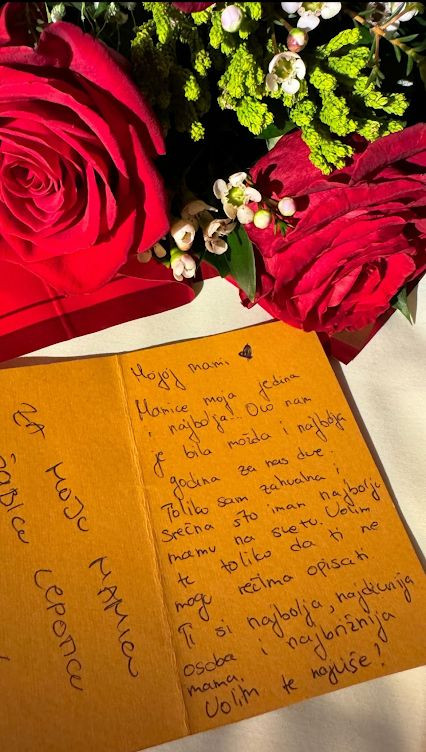 Mojoj mami
Mamice moja jedina
i najbolja... Ovo nam
je bila možda i najbolja
godina za nas dve.
Toliko sam zahvalna i
srećna što imam najbolju
mamu na svetu. Volim
te toliko da ti ne
mogu rečima opisati.
Ti si najbolja, najdivnija
osoba i najbrižnija
mama.
Volim te najviše!
ZA MOJU MAMICU
LEPOTICU